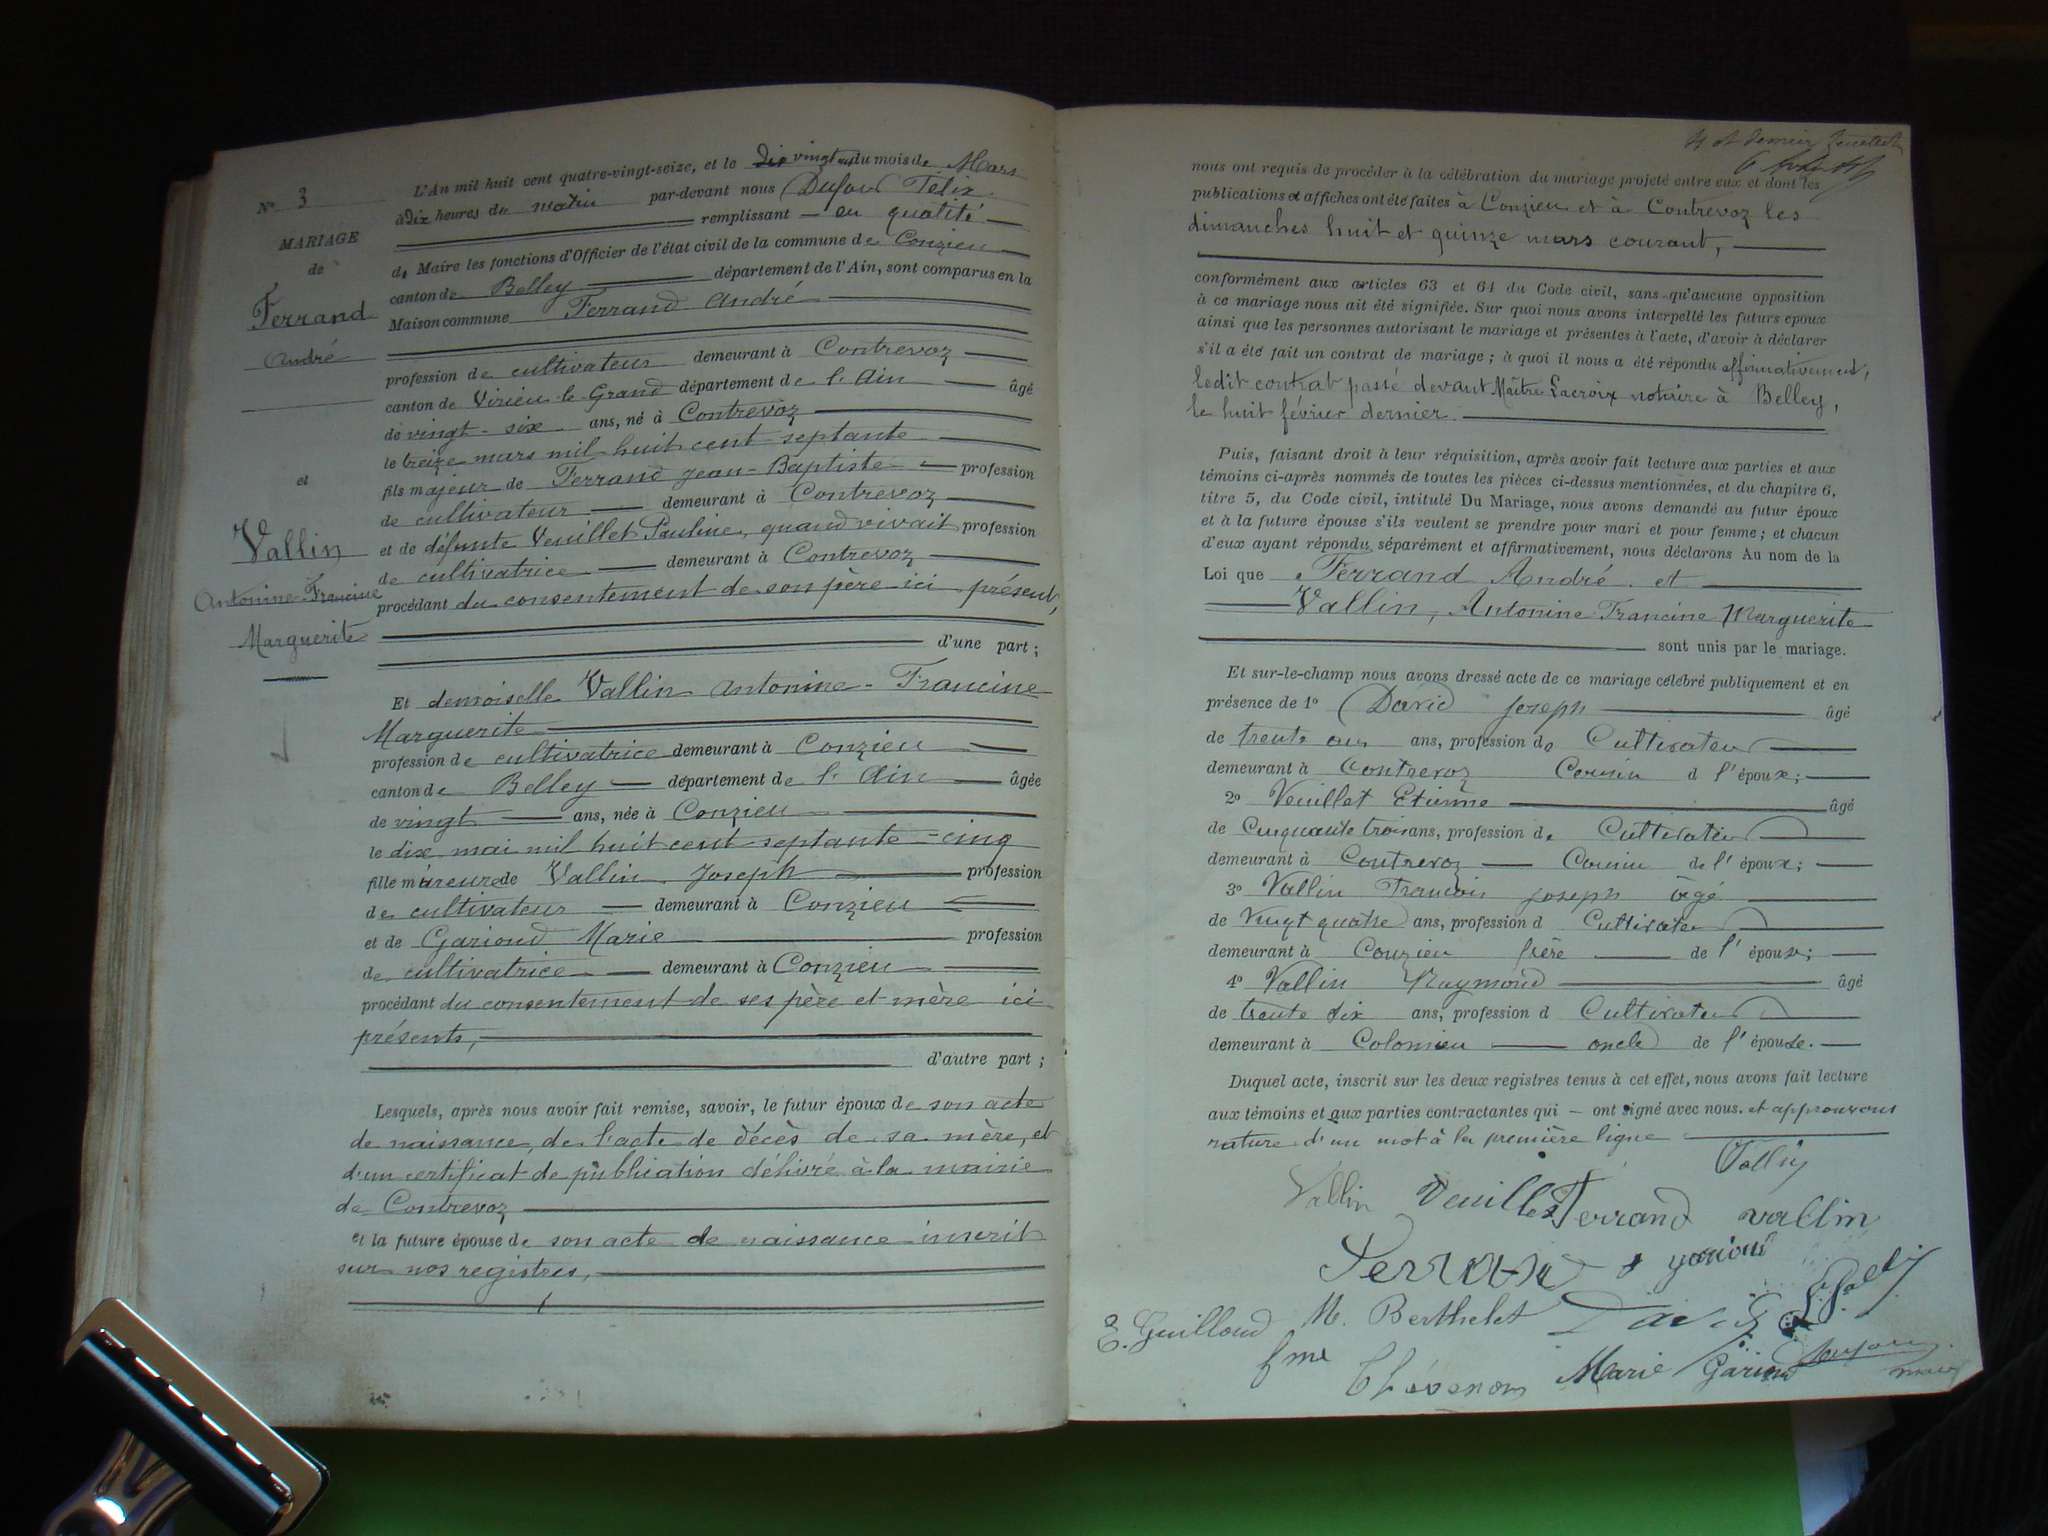 N° 3
MARIAGE
de
Ferrand
André
et
Vallin
Antonine Francine
Marguerite
L'An mil huit cent quatre-vingt-seize, et le dix vingt du mois de Mars
à dix heures du matin par-devant nous Dufour Félix
remplissant en qualité
de Maire les fonctions d'Officier de l'état civil de la commune de Conzieu
canton de Belley département de l'Ain, sont comparus en la
Maison commune Ferrand André
profession de cultivateur demeurant à Contrevoz
canton de Virieu-le-Grand département de l'Ain âgé
de vingt-six ans, né à Contrevoz
le treize mars mil huit cent septante
fils majeur de Ferrand Jean-Baptiste profession
de cultivateur demeurant à Contrevoz
et de défunte Veuillet Pauline, quand vivait profession
de cultivatrice demeurant à Contrevoz
procédant du consentement de son père ici présent,
d'une part ;
Et demoiselle Vallin Antonine-Francine
Marguerite
profession de cultivatrice demeurant à Conzieu
canton de Belley département de l'Ain âgée
de vingt ans, née à Conzieu
le dix mai mil huit cent septante-cinq
fille mineure de Vallin Joseph profession
de cultivateur demeurant à Conzieu
et de Gariond Marie profession
de cultivatrice demeurant à Conzieu
procédant du consentement de ses père et mère ici
présents,
d'autre part ;
Lesquels, après nous avoir fait remise, savoir, le futur époux de son acte
de naissance, de l'acte de décès de sa mère, et
d'un certificat de publication délivré à la mairie
de Contrevoz
et la future épouse de son acte de naissance inscrit
sur nos registres,
et dernier feuillet
nous ont requis de procéder à la célébration du mariage projeté entre eux et dont les
publications et affiches ont été faites à Conzieu et à Contrevoz les
dimanches huit et quinze mars courant,
conformément aux articles 63 et 64 du Code civil, sans qu'aucune opposition
à ce mariage nous ait été signifiée. Sur quoi nous avons interpellé les futurs époux
ainsi que les personnes autorisant le mariage et présentes à l'acte, d'avoir à déclarer
s'il a été fait un contrat de mariage ; à quoi il nous a été répondu affirmativement,
ledit contrat passé devant Maître Lacroix notaire à Belley,
le huit février dernier.
Puis, faisant droit à leur réquisition, après avoir fait lecture aux parties et aux
témoins ci-après nommés de toutes les pièces ci-dessus mentionnées, et du chapitre 6,
titre 5, du Code civil, intitulé Du Mariage, nous avons demandé au futur époux
et à la future épouse s'ils veulent se prendre pour mari et pour femme ; et chacun
d'eux ayant répondu séparément et affirmativement, nous déclarons Au nom de la
Loi que Ferrand André et
Vallin, Antonine Francine Marguerite
sont unis par le mariage.
Et sur-le-champ nous avons dressé acte de ce mariage célébré publiquement et en
présence de 1° David Joseph âgé
de trente ans, profession de Cultivateur
demeurant à Contrevoz Cousin d l'époux ;
2° Veuillet Etienne âgé
de Cinquante trois ans, profession de Cultivateur
demeurant à Contrevoz Cousin de l'époux ;
3° Vallin François Joseph âgé
de vingt quatre ans, profession d Cultivateur
demeurant à Conzieu frère de l'épouse ;
4° Vallin Raymond âgé
de trente dix ans, profession d Cultivateur
demeurant à Colomieu oncle de l'épouse.
Duquel acte, inscrit sur les deux registres tenus à cet effet, nous avons fait lecture
aux témoins et aux parties contractantes qui ont signé avec nous. et approuvons
rature d'un mot à la première ligne
Vallin
Vallin Veuillet Ferrand Vallin
Ferrand
E. Guilloud M. Berthelet David
fme Thévenon Marie Gariod Dufour maire